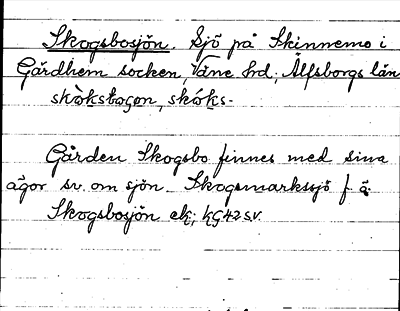 Skogsbosjön. Sjö på Skinnemo i
Gärdhem socken, Väne hd; Älfsborgs län
skòkstogen, skóks-
Gården Skogsbo finnes med sina
ägor sv. om sjön. Skogsmarkssjö f. ä.
Skogsbosjön ek; kG42SV.